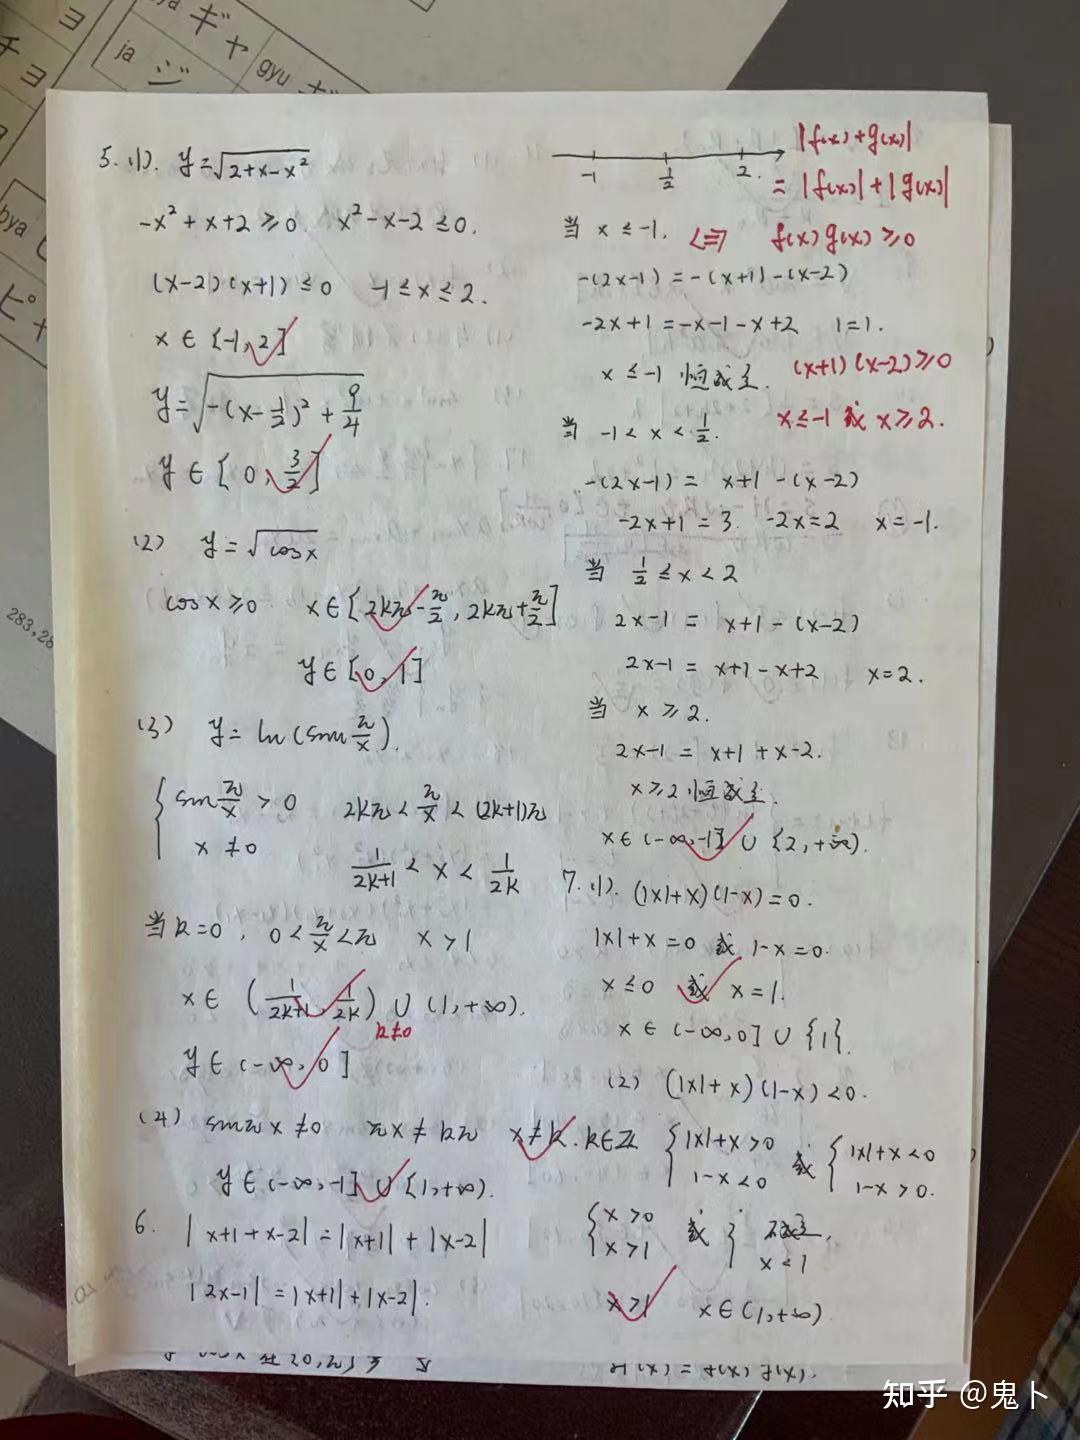 ヨ
ja
ギャ
gyu
チョ
ja
ジ
bya
ピャ
283,28
5.(1). y=√(2+x-x²)
-x²+x+2≥0 x²-x-2≤0.
(x-2)(x+1)≤0 -1≤x≤2.
x∈[-1,2]
y=√(-(x-1/2)²+9/4)
y∈[0,3/2]
(2) y=√cosx
cosx≥0 x∈[2kπ-π/2, 2kπ+π/2]
y∈[0,1]
(3) y=ln(sin π/x).
{ sin π/x >0 2kπ<π/x<(2k+1)π
x≠0 1/(2k+1)<x<1/2k
当k=0, 0<π/x<π x>1
x∈(1/(2k+1), 1/2k)∪(1,+∞).
k≠0
y∈(-∞,0]
(4) sinπx≠0 πx≠kπ x≠k.k∈Z
y∈(-∞,-1]∪[1,+∞).
6. |x+1+x-2|=|x+1|+|x-2|
|2x-1|=|x+1|+|x-2|.
-1 1/2 2.
|f(x)+g(x)|
=|f(x)|+|g(x)|
当 x≤-1. <=> f(x)g(x)≥0
-(2x-1)=-(x+1)-(x-2)
-2x+1=-x-1-x+2 1=1.
x≤-1 恒成立. (x+1)(x-2)≥0
x≤-1 或 x≥2.
当 -1<x<1/2.
-(2x-1)= x+1-(x-2)
-2x+1=3. -2x=2 x=-1.
当 1/2≤x<2
2x-1= x+1-(x-2)
2x-1= x+1-x+2 x=2.
当 x≥2.
2x-1= x+1+x-2.
x≥2 恒成立.
x∈(-∞,-1]∪[2,+∞).
7.(1). (|x|+x)(1-x)=0.
|x|+x=0 或 1-x=0.
x≤0 或 x=1.
x∈(-∞,0]∪{1}.
(2) (|x|+x)(1-x)<0.
{ |x|+x>0 或 { |x|+x<0
1-x<0 1-x>0.
{ x>0 或 { 不成立.
x>1 x<1
x>1 x∈(1,+∞)
知乎 @鬼卜